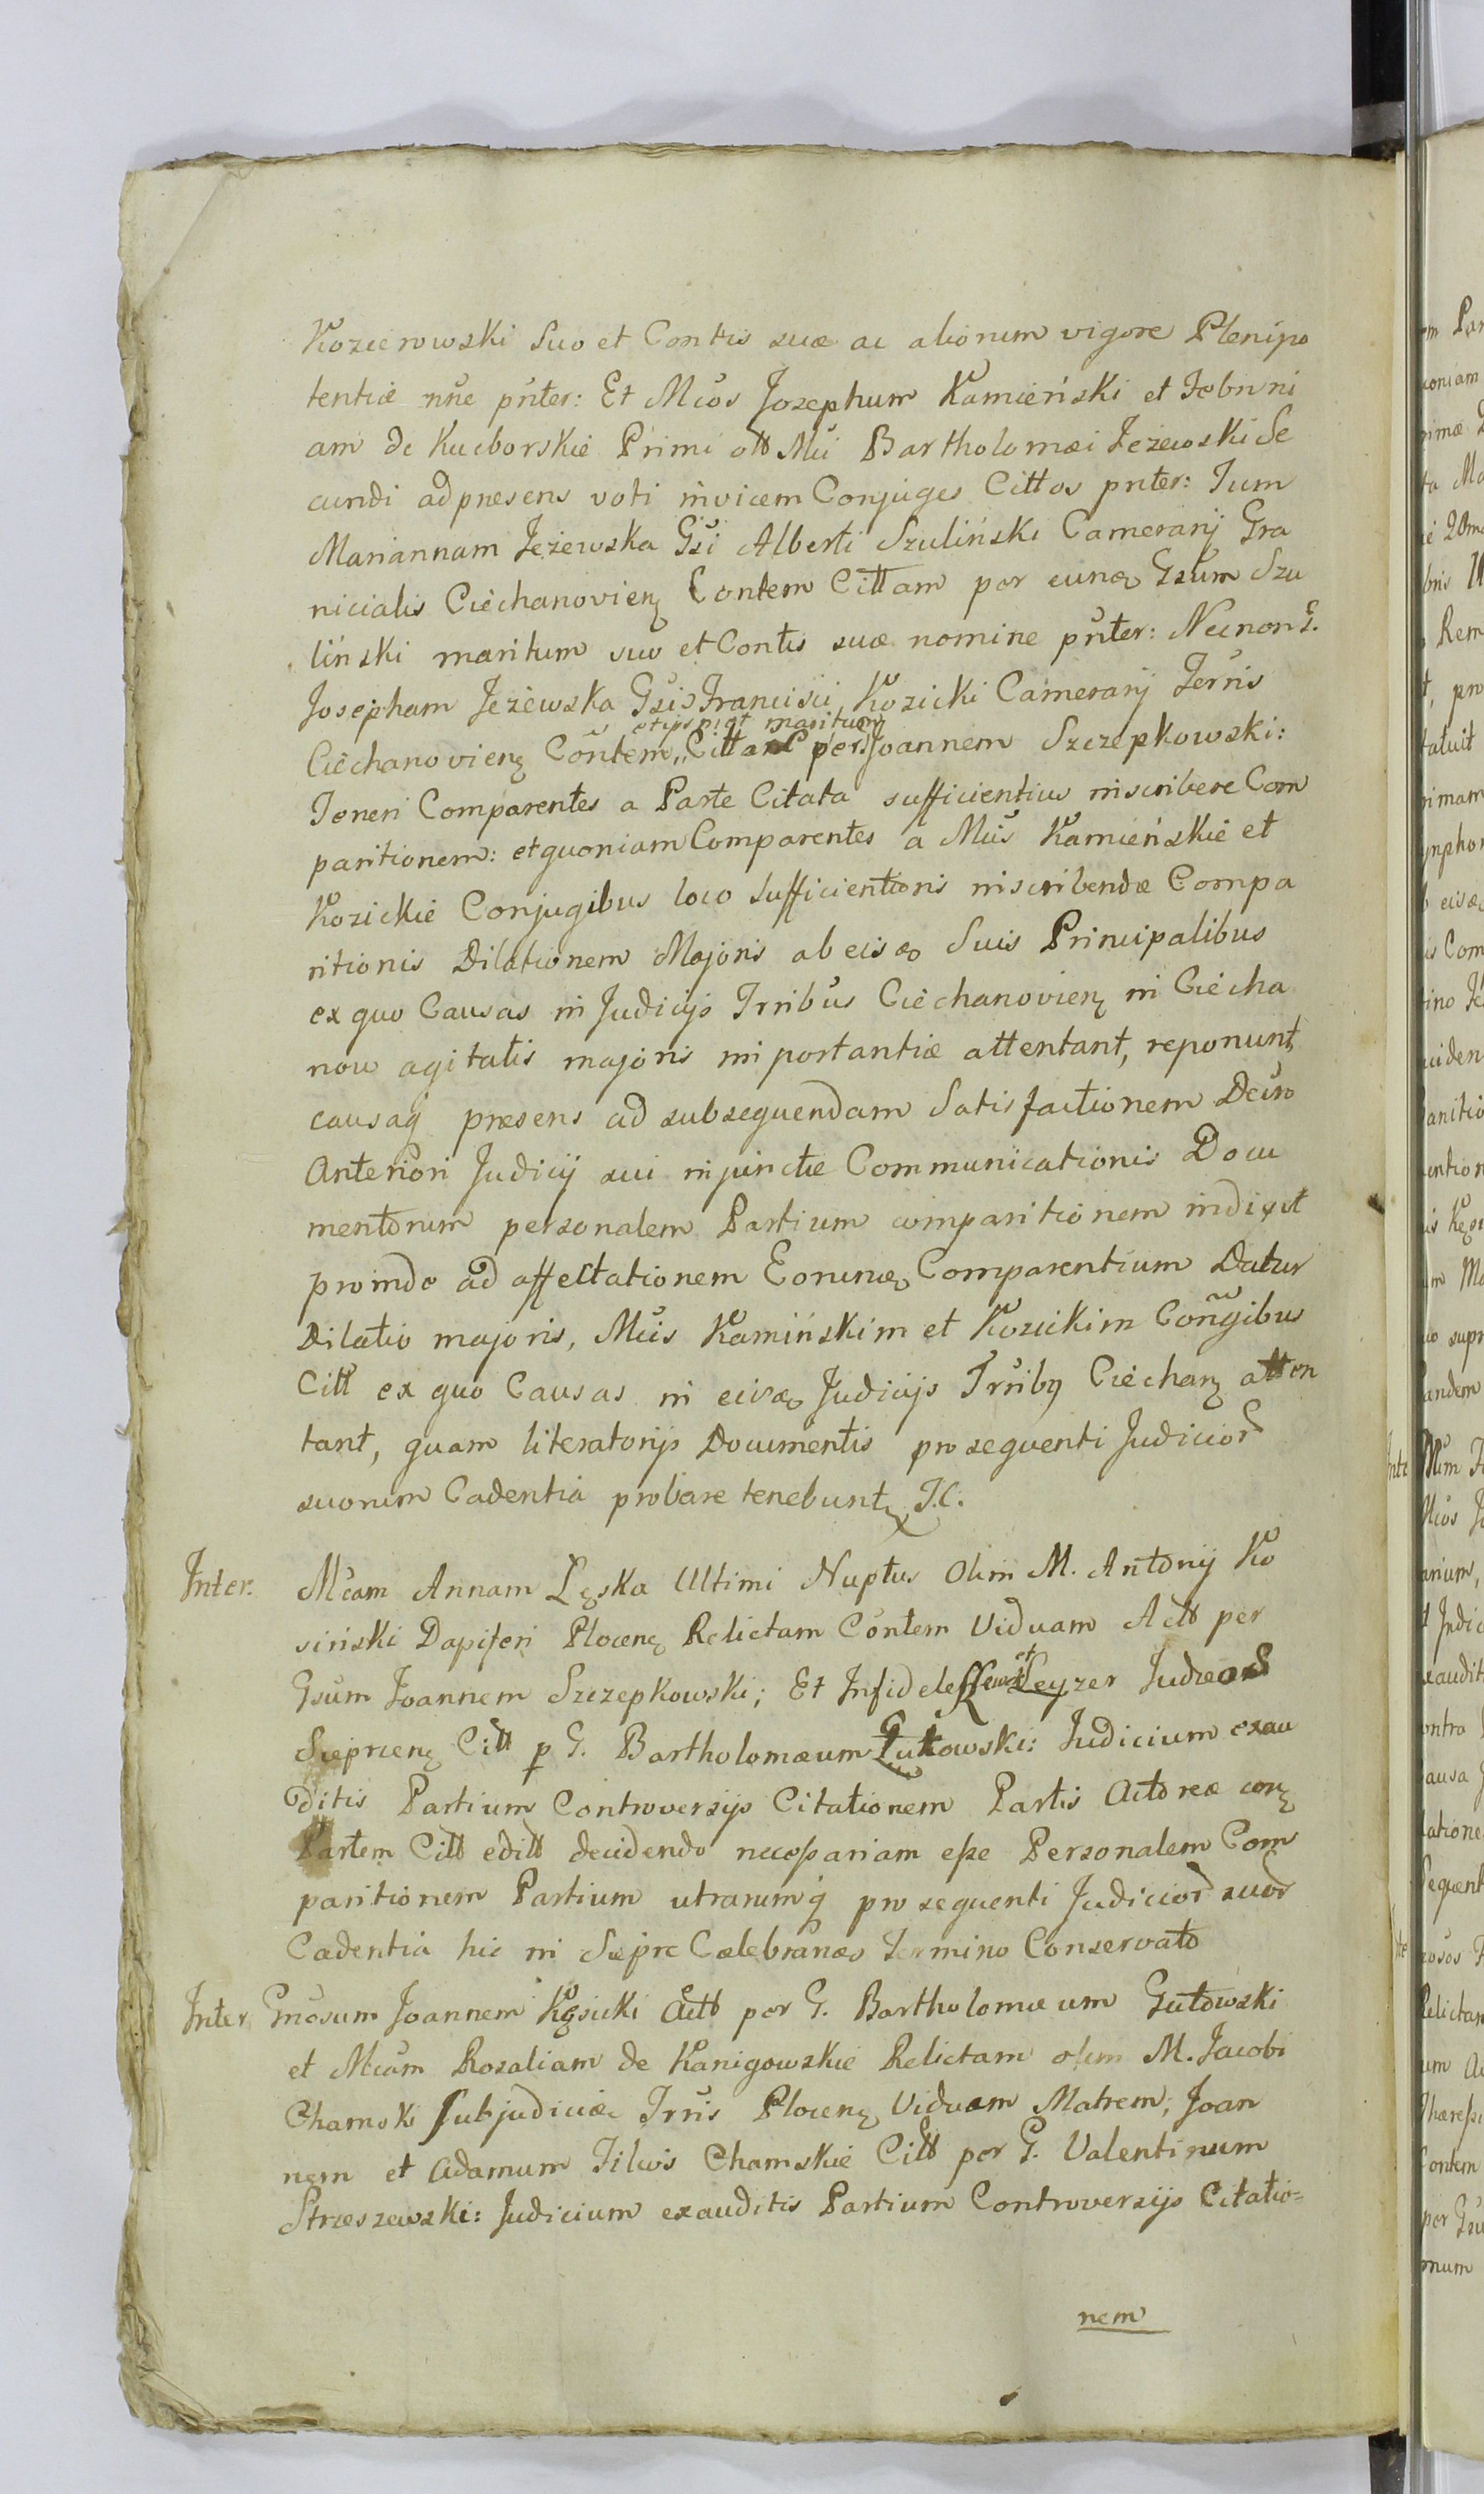 Kozierowski Suo et Contis suæ ac aliorum vigore Plenipo
tentiæ nñe pñter: Et Mĉos Josephum Kamieński et Febroni
am de Kuczborskie Primi olł Mĉi Bartholomæi Jeżewski Se
cundi ad præsens voti invicem Conjuges Cittos pnter: Tum
Mariannam Jeżewska Gsi Alberti Szuliński Camerarij Gra
nicialis Ciechanovieng Contem Cittam per eunđ Gsum Szu
liński maritum suo et Contis suæ nomine pñter: Necnon G.
Josepham Jeżewska Gsi Francisci Kozicki Camerarij Terris
et ipsmet maritum
Ciechanovieng Cõntem,, Cittam per Joannem Szczepkowski:
Teneri Comparentes a Parte Citata sufficientius inscribere Com
paritionem: et quoniam Comparentes a Mĉis Kamieńskie et
Kozickie Conjugibus loco Sufficientioris inscribendæ Compa
ritionis Dilationem Majoris ab eisđ Suis Principalibus
ex quo Causas in Judicijs Trribus Ciechanovieng in Ciecha
now agitatis majoris importantiæ attentant, reponunt,
causaq præsens ad subsequendam Satisfactionem Decro
Anteriori Judicij sui injunctæ Communicationis Docu
mentorum personalem Partium comparitionem indixit
proinde ad affectationem Eorunđ Comparentium Datur
Dilatio majoris, Mĉis Kamińskim et Kozickim Conjgibus
Citt ex quo Causas in eisđ Judicijs Trribq Ciechang atten
tant, quam literatorijs Documentis pro sequenti Judicior
suorum Cadentia probare tenebunt, T.C.
Inter. Mĉam Annam Lęska Ultimi Nuptus Olim M. Antonij Ko
siński Dapiferi Ploceng Relictam Contem Viduam Actt per
Gsum Joannem Szczepkowski; Et Infideles et Leyzer Judæos
Sieprceng Citt p G. Bartholomæum Gutowski: Judicium exau
ditis Partium Controversijs Citationem Partis Actoreæ cong
Partem Citt editt decidendo necessariam esse Personalem Com
paritionem Partium utrarumq pro sequenti Judicior suor
Cadentia hic in Sieprc Celebranđ Termino Conservato
Inter Gnosum Joannem Kęsicki Actt per G. Bartholomæum Gutowski
et Mĉam Rozaliam de Kanigowskie Relictam olim M. Jacobi
Chamski Subjudicis Trris Ploceng Viduam Matrem, Joan
nem et Adamum Filios Chamskie Citt per G. Valentinum
Strzeszewski: Judicium exauditis Partium Controversijs Citatio=
nem